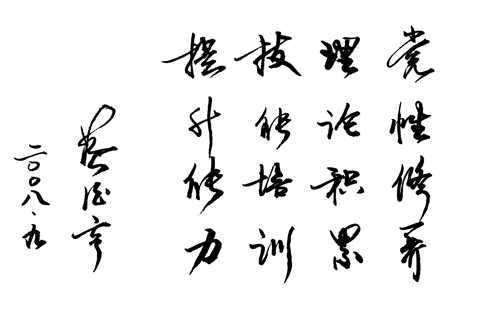 党性修养
理论积累
技能培训
提升能力
二〇〇八.九